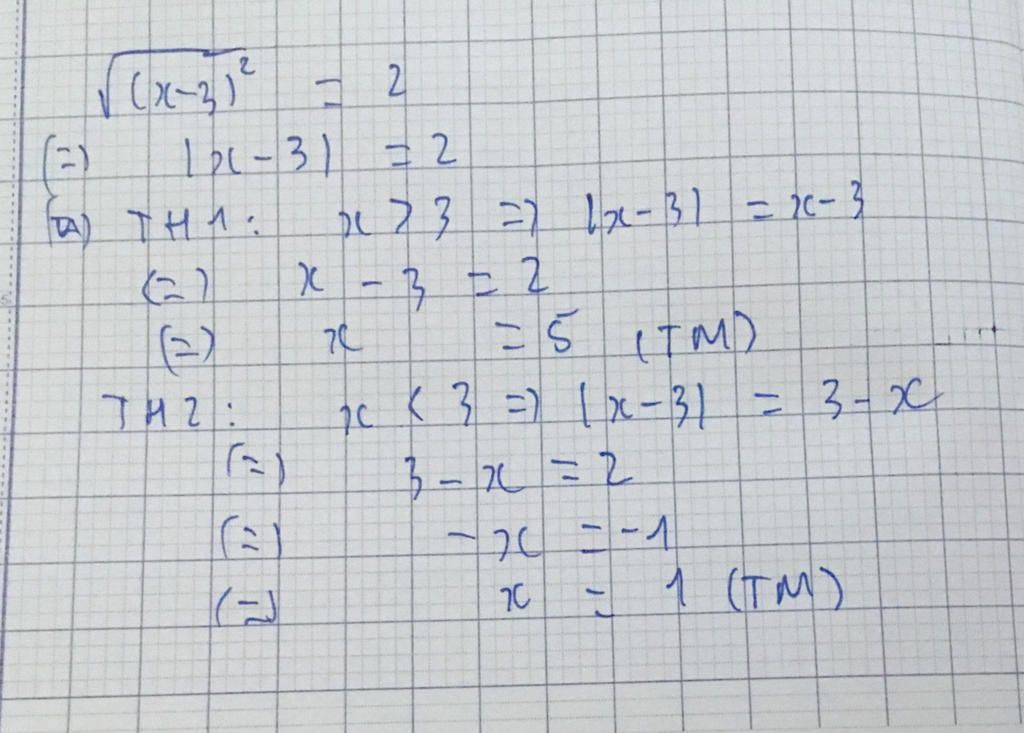 √(x-3)² = 2
(=) |x-3| = 2
TH1: x > 3 => |x-3| = x-3
(=) x - 3 = 2
(=) x = 5 (TM)
TH2: x < 3 => |x-3| = 3-x
(=) 3-x = 2
(=) -x = -1
(=) x = 1 (TM)